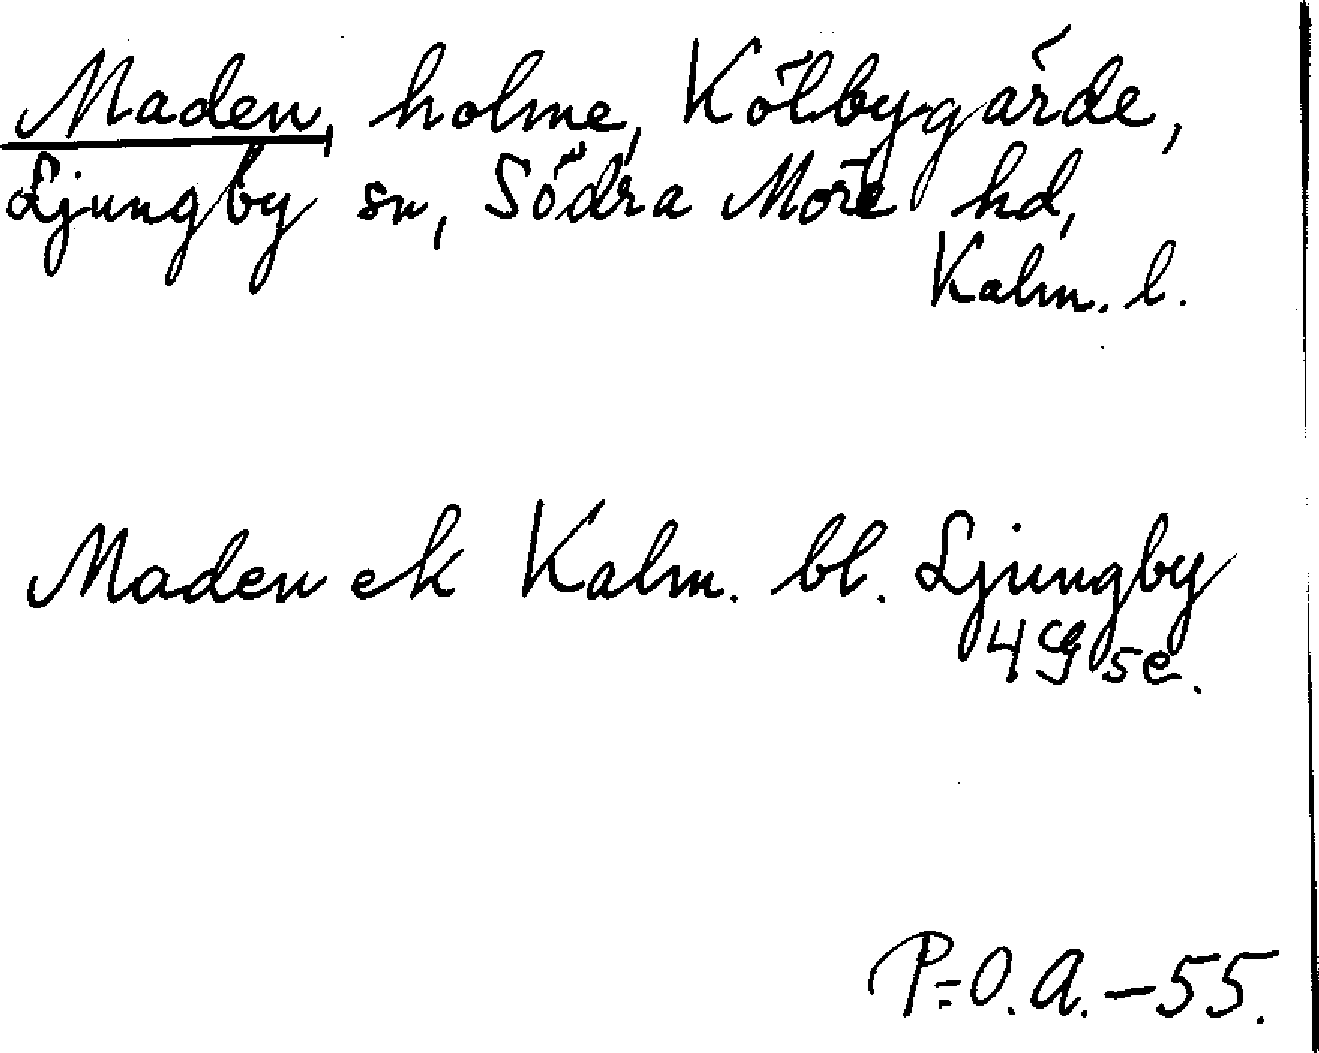 Maden, holme, Kölbygärde,
Ljungby sn, Södra Möre hd,
Kalm. l.
Maden ek Kalm. bl. Ljungby
4G se.
P-O.A.-55.